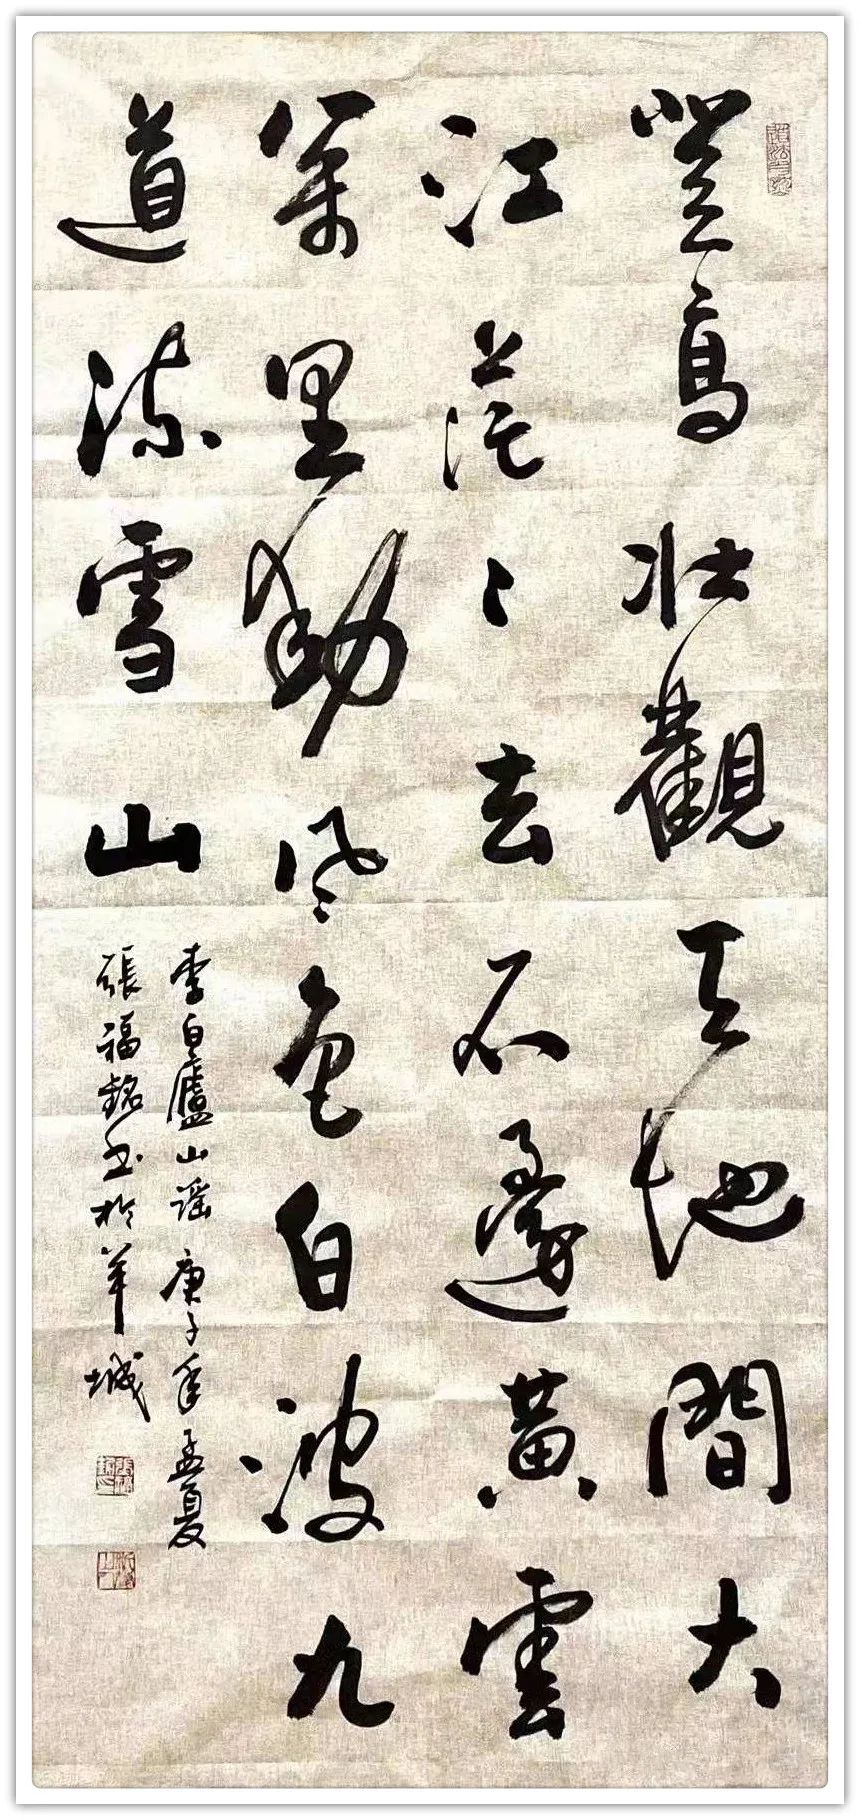 登高壯觀天地間大
江茫〻去不還黃雲
萬里動風色白波九
道流雪山
李白廬山謡 庚子年孟夏
張福銘书於羊城